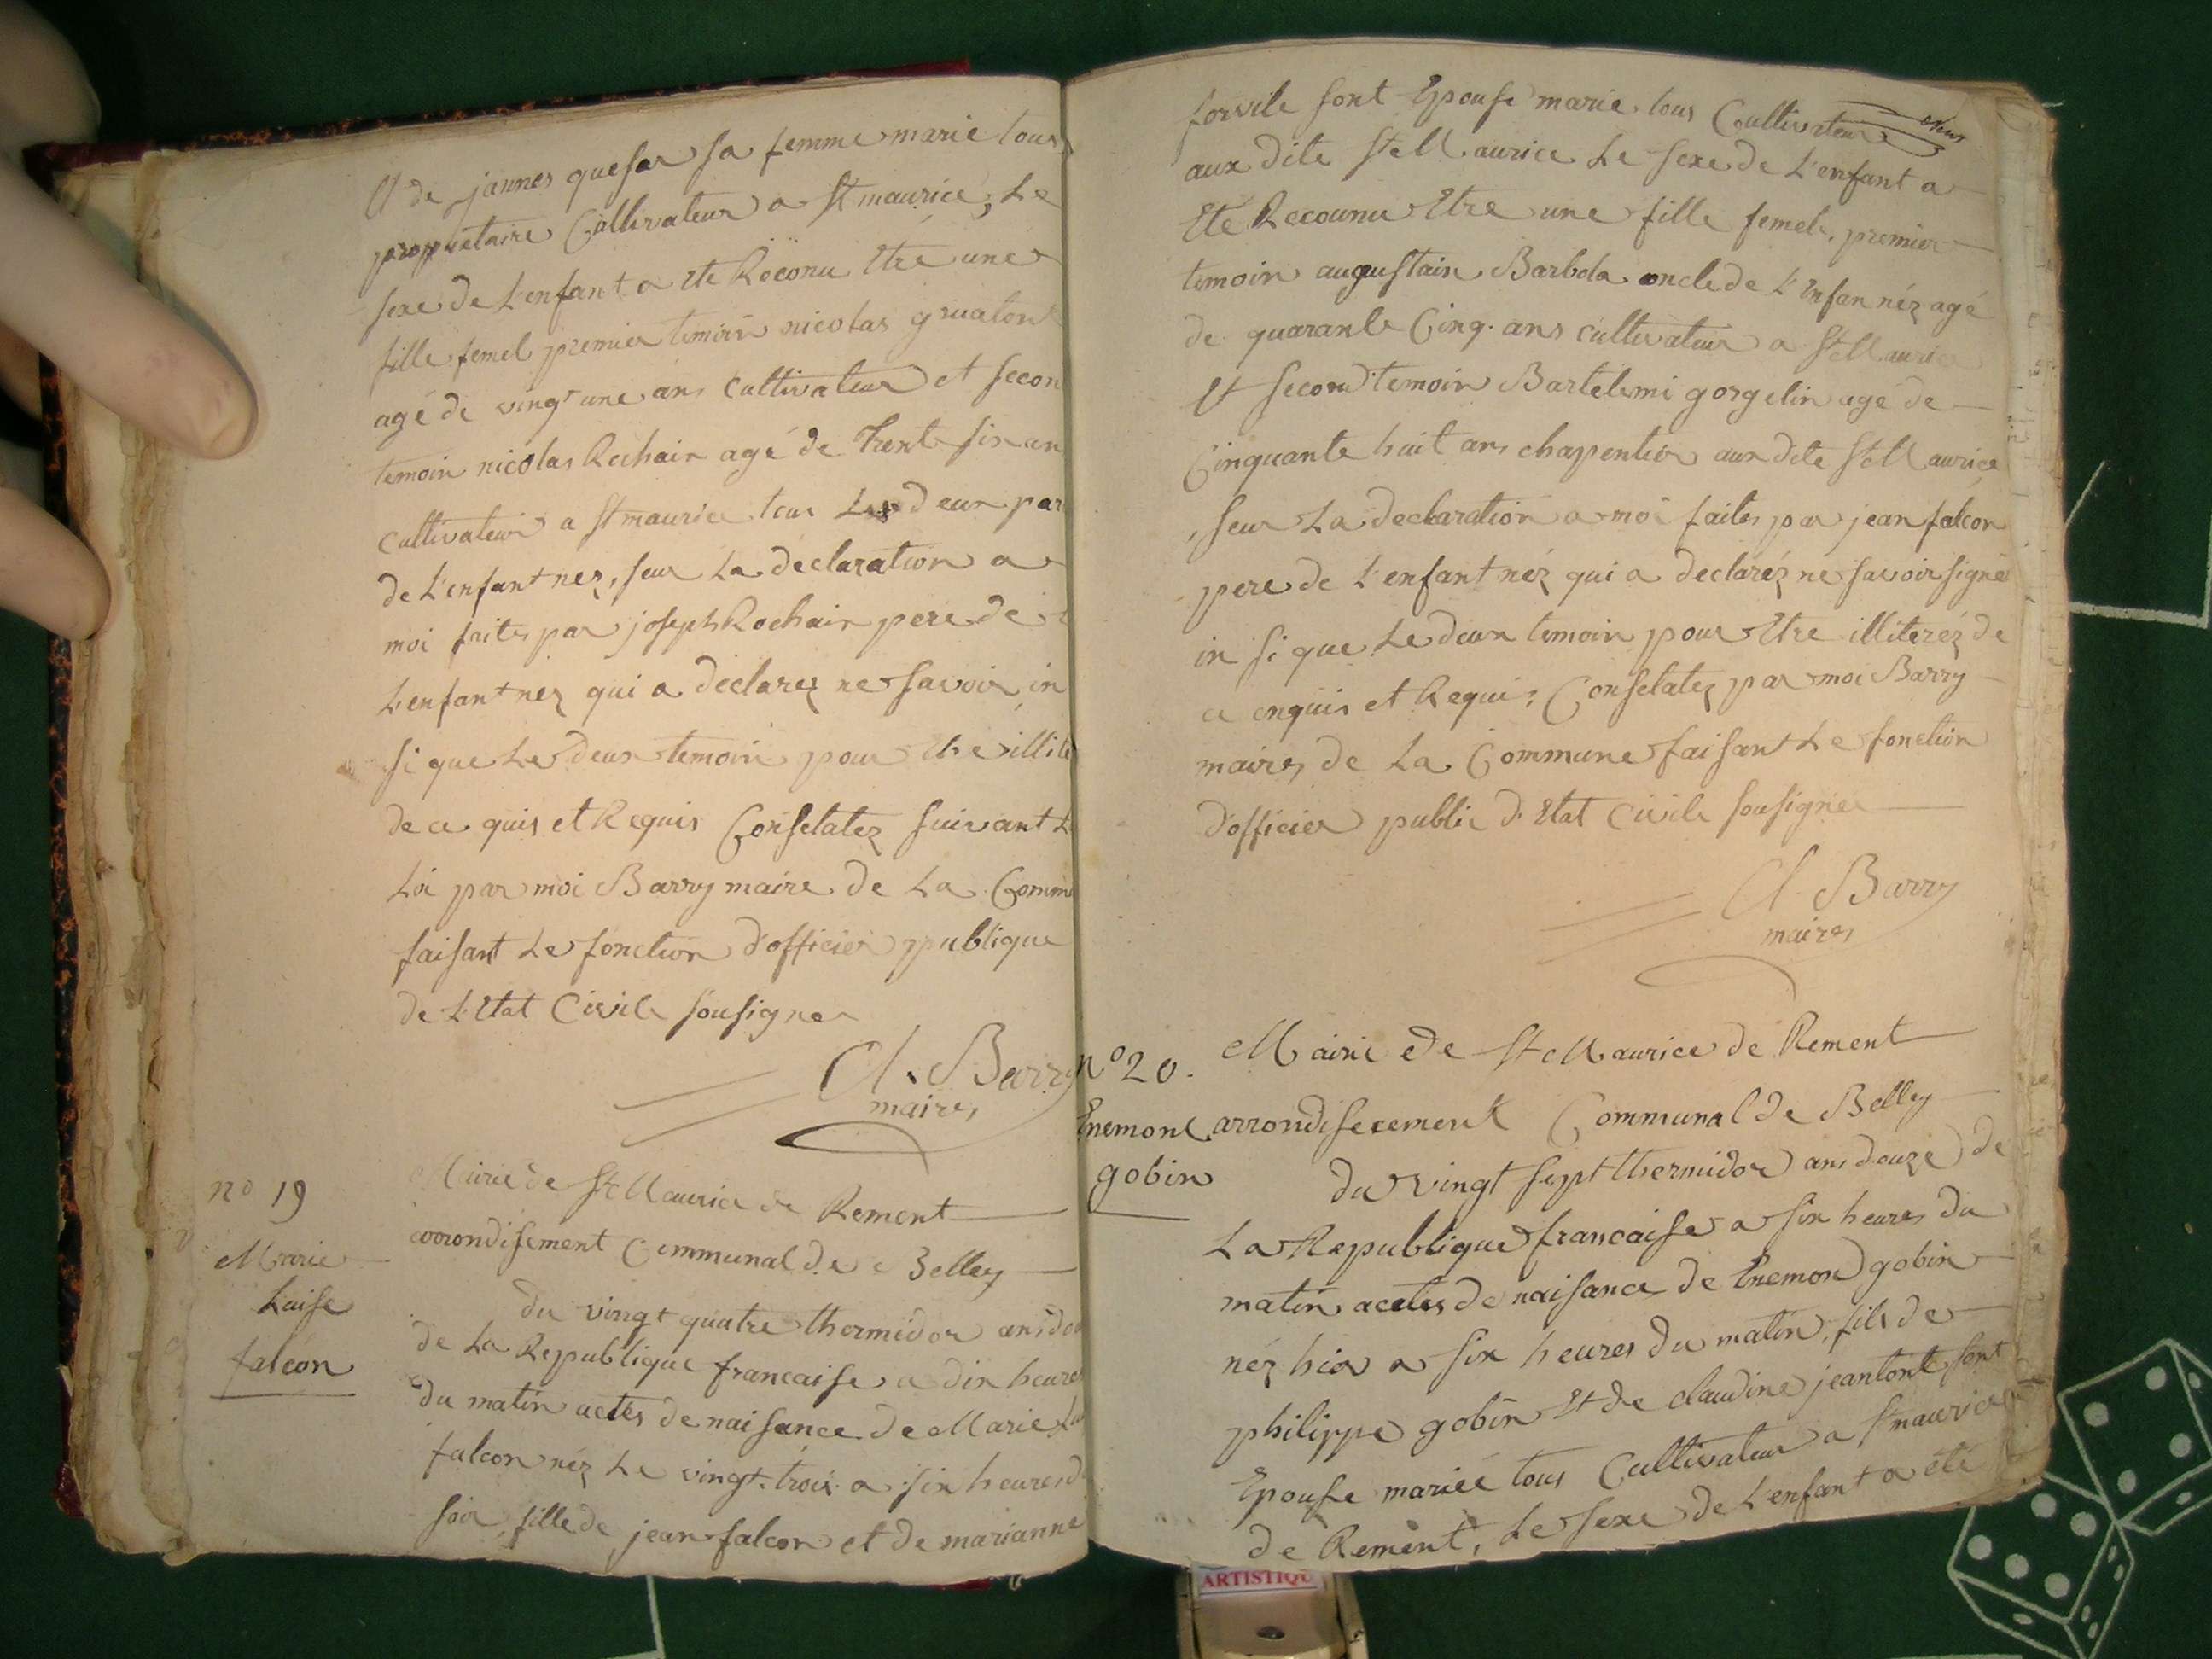 de jannes quesar sa femme marie tous
propriétaire Cultivateur a St maurice, Le
sexe de L'enfant a ete Reconu Etre une
fille femel premier temoin nicolas grualont
agé de vingt une ans Cultivateur et secon
temoin nicolas Rochair agé de Trente six an
cultivateur a St maurice tous Les deux par
de L'enfant nez, seur La déclaration a
moi faites par joseph Rochair pere de
L'enfant nez qui a déclarez ne savoir in
si que Le deux temoin pour Etre illité
de ce quis et Requis Consetatez suivant L
Loi par moi Barry maire de La Comm
faisant Le fonction d'officier publique
de L'Etat Civile sousigner
Cl. Barry
maires
no 19
Marie
Luise
falcon
Mairie de St Maurice de Rement
arrondisement Communal de Belley
du vingt quatre thermidor ans dou
de La Republique francaise a dix heures
du matin actés de naisance de Marie Lu
falcon néz Le vingt trois a six heures d
soir, fille de jean falcon et de marianne
forvile sont Epouse marie tous Cultivateur
aux dite St Maurice Le sexe de L'enfant a
Eté Recounu Etre une fille femele, premier
temoin augustain Barbola oncle de L'Enfan néz agé
de quarante Cinq ans cultivateur a St Maurice
Et second temoin Bartelemi gorgelin agé de
Cinquante huit ans chapentier aux dite St Maurice
, seur La declaration a moi faites par jean falcon
pere de L'enfant néz qui a declaréz ne savoir signé
in si que Le deux temoin pour Etre illiteréz de
ce enquis et Requis Consetatez par moi Barry
maires de La Commune faisant Le fonction
d'officier public d'Etat Civile sousigner
Cl. Barry
maires
no 20.
Enemont
gobin
Mairie de St Maurice de Rement
arrondisecement Communal de Belley
du vingt sept thermidor ans douze de
La Republique francaise a six heures du
matin acetes de naisance de Enemond gobin
néz hier a six heures du matin, fils de
philippe gobin Et de claudine jeantont sont
Epouse mariée tous Cultivateur a St maurice
de Rement, Le sexe de L'enfant a été
ARTISTIQU